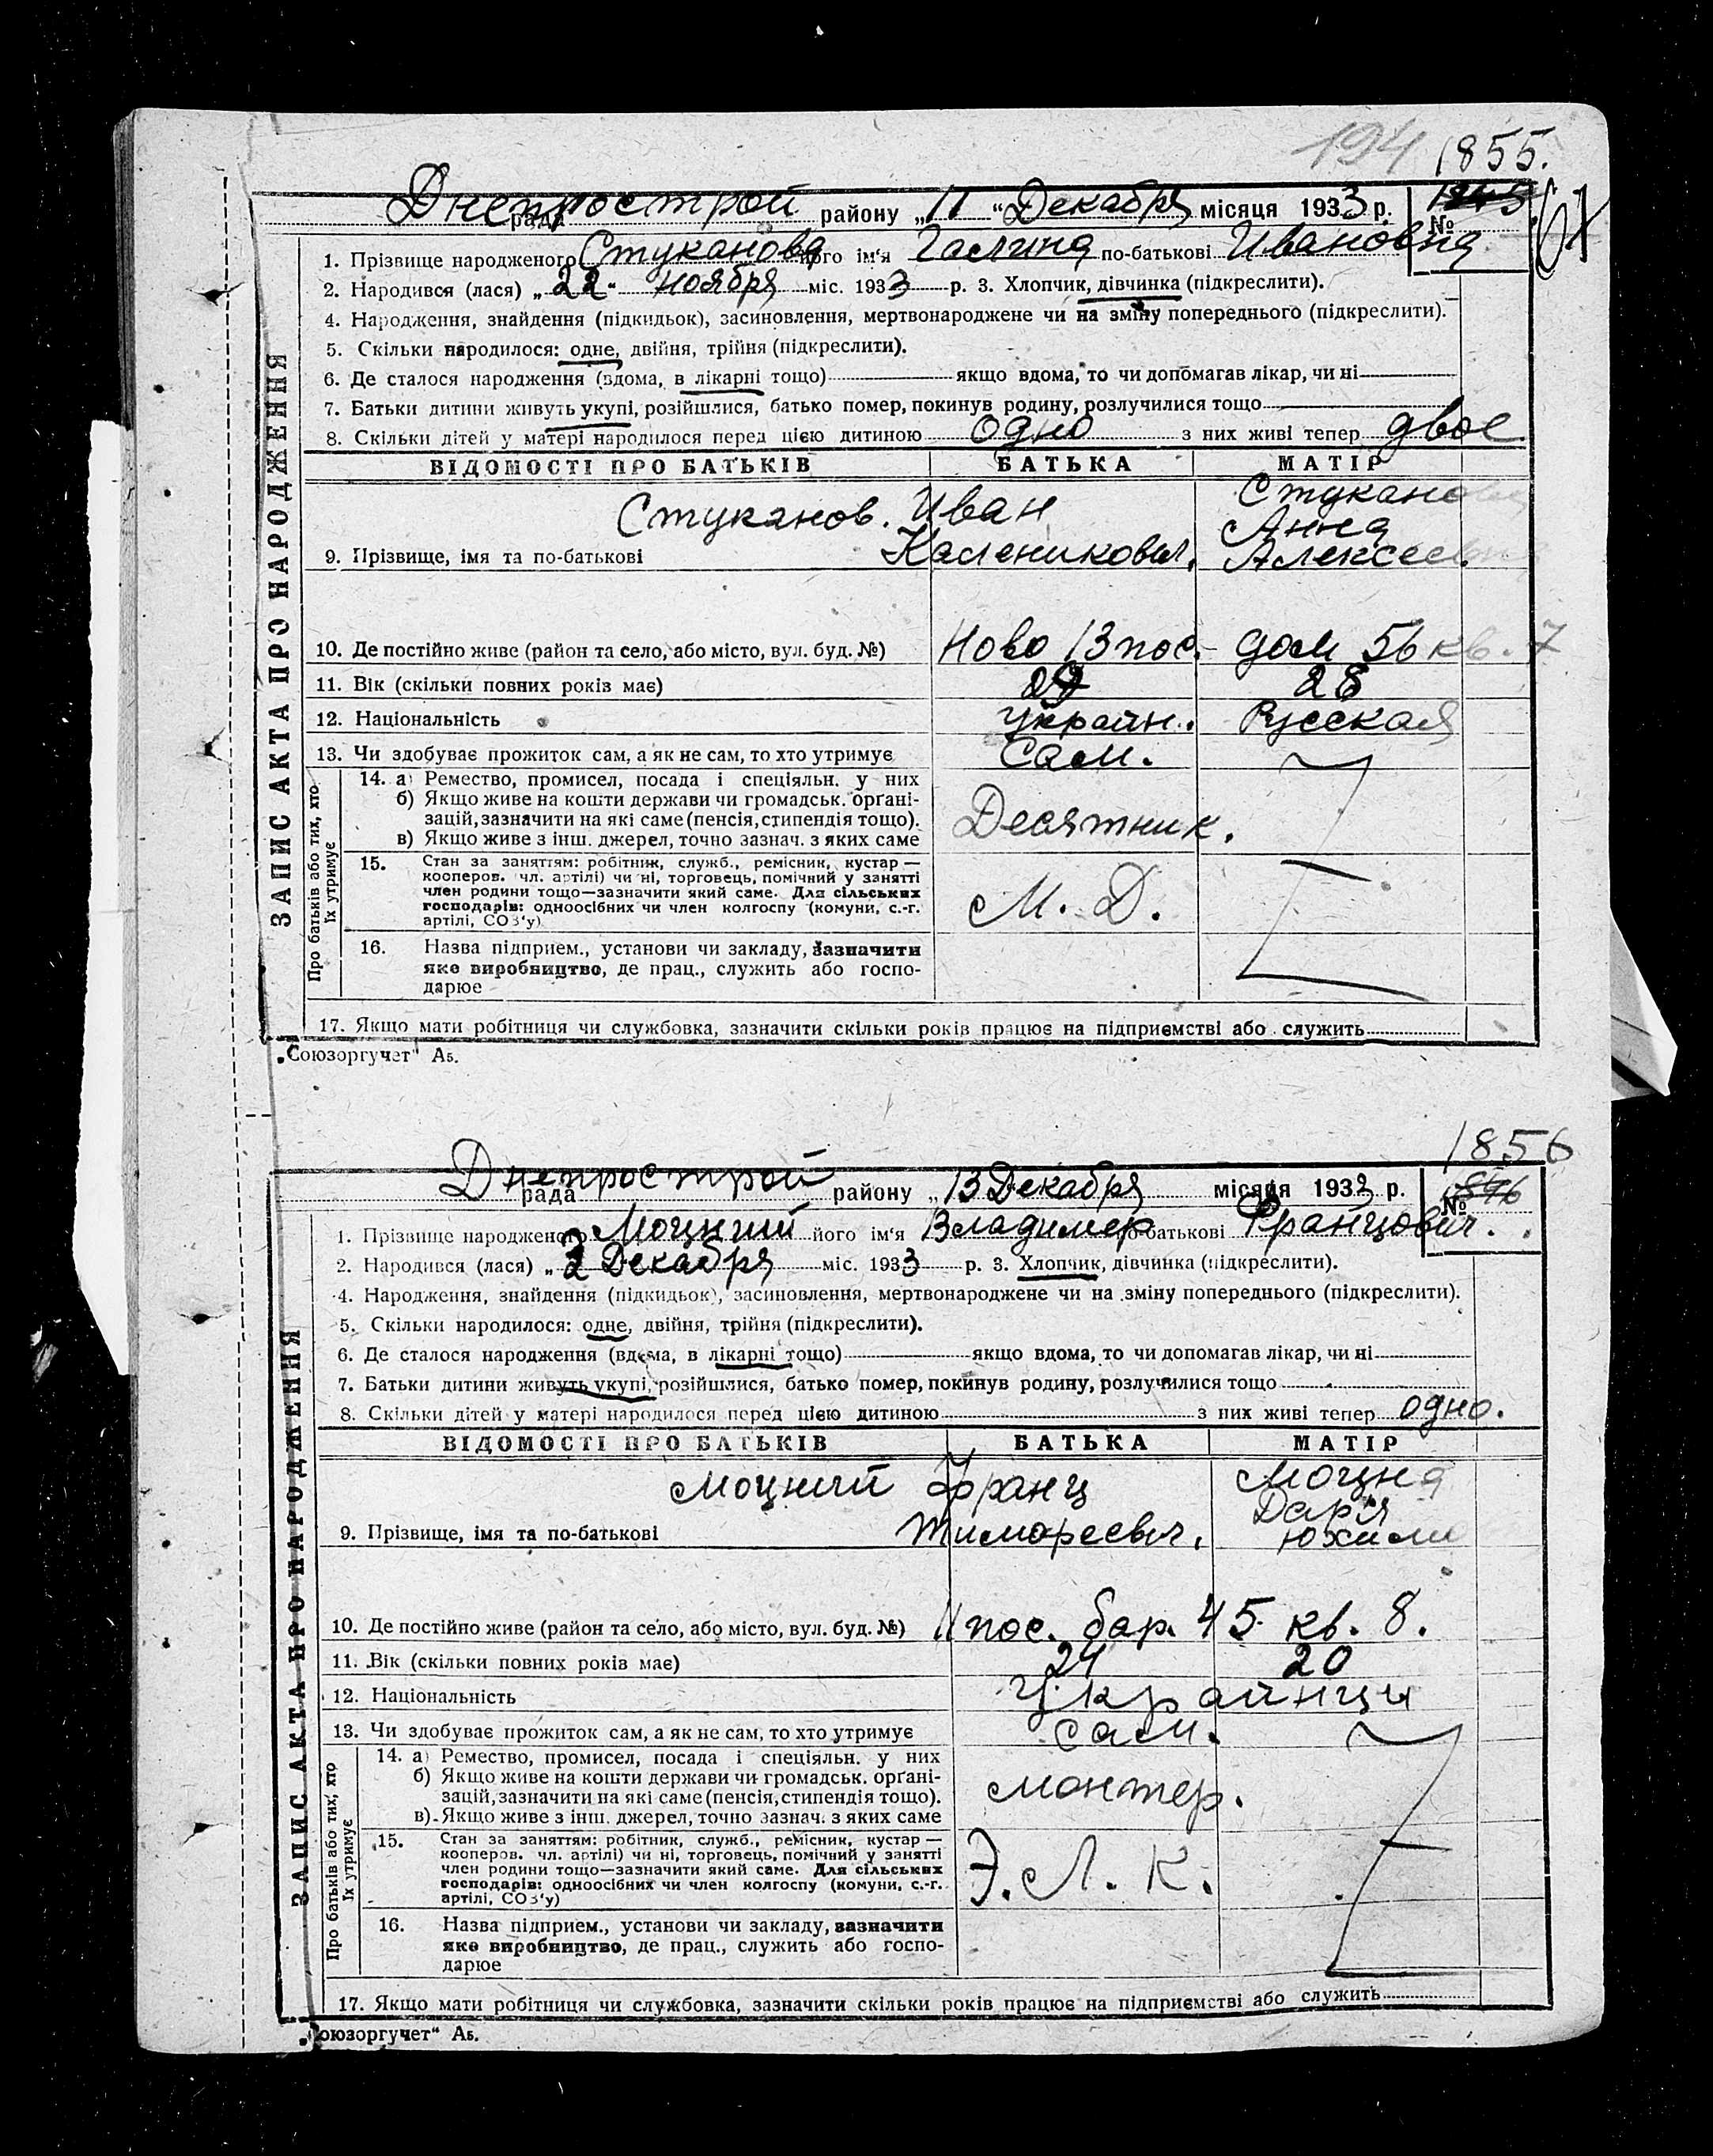 194 1855.
Днепрострой
рада району „11“ Декабря місяця 1933 р. № 1845
1. Прізвище народженого Стуканова його ім‘я Галина по-батькові Ивановна
2. Народився (лася) „22“ ноября міс. 1933 р. 3. Хлопчик, дівчинка (підкреслити).
4. Народження, знайдення (підкидьок), засиновлення, мертвонароджене чи на зміну попереднього (підкреслити).
5. Скільки народилося: одне, двійня, трійня (підкреслити).
6. Де сталося народження (вдома, в лікарні тощо) якщо вдома, то чи допомагав лікар, чи ні
7. Батьки дитини живуть укупі, розійшлися, батько помер, покинув родину, розлучилися тощо
8. Скільки дітей у матері народилося перед цією дитиною одно з них живі тепер двое
ВІДОМОСТІ ПРО БАТЬКІВ БАТЬКА МАТІР
Стуканов. Иван Стуканова
Анна
9. Прізвище, імя та по-батькові Каленикович. Алексеевна
10. Де постійно живе (район та село, або місто, вул. буд. №) Ново 13 пос. дом 56 кв. 7
11. Вік (скільки повних років має) 29 28
12. Національність Украин. Русская
13. Чи здобуває прожиток сам, а як не сам, то хто утримує Сам.
14. а) Ремество, промисел, посада і спеціяльн. у них
б) Якщо живе на кошти держави чи громадськ. орґані-
зацій, зазначити на які саме (пенсія, стипендія тощо).
в) Якщо живе з інш. джерел, точно зазнач. з яких саме
Десятник.
15. Стан за заняттям: робітник, служб., ремісник, кустар —
кооперов. чл. артілі) чи ні, торговець, помічний у занятті
член родини тощо—зазначити який саме. Для сільських
господарів: одноосібних чи член колгоспу (комуни, с.-г.
артілі, СОЗ‘у)
М. Д.
16. Назва підприєм., установи чи закладу, зазначити
яке виробництво, де прац., служить або госпо-
дарює
17. Якщо мати робітниця чи службовка, зазначити скільки років працює на підприємстві або служить
Про батьків або тих, хто
їх утримує
ЗАПИС АКТА ПРО НАРОДЖЕННЯ
„Союзоргучет“ Аб.
1856
Днепрострой
рада району „13 Декабря місяця 1933 р. № 1846
1. Прізвище народженого Моцний його ім‘я Владимер по-батькові Францович.
2. Народився (лася) „2 Декабря міс. 1933 р. 3. Хлопчик, дівчинка (підкреслити).
4. Народження, знайдення (підкидьок), засиновлення, мертвонароджене чи на зміну попереднього (підкреслити).
5. Скільки народилося: одне, двійня, трійня (підкреслити).
6. Де сталося народження (вдома, в лікарні тощо) якщо вдома, то чи допомагав лікар, чи ні
7. Батьки дитини живуть укупі, розійшлися, батько помер, покинув родину, розлучилися тощо
8. Скільки дітей у матері народилося перед цією дитиною з них живі тепер одно.
ВІДОМОСТІ ПРО БАТЬКІВ БАТЬКА МАТІР
Моцний Франц Моцна
Дарія
9. Прізвище, імя та по-батькові Тимореевич. Юхим
10. Де постійно живе (район та село, або місто, вул. буд. №) 11 пос. бар. 45 кв. 8.
11. Вік (скільки повних років має) 24 20
12. Національність Украинци
13. Чи здобуває прожиток сам, а як не сам, то хто утримує сам.
14. а) Ремество, промисел, посада і спеціяльн. у них
б) Якщо живе на кошти держави чи громадськ. орґані-
зацій, зазначити на які саме (пенсія, стипендія тощо).
в) Якщо живе з інш. джерел, точно зазнач. з яких саме
монтер.
15. Стан за заняттям: робітник, служб., ремісник, кустар —
кооперов. чл. артілі) чи ні, торговець, помічний у занятті
член родини тощо—зазначити який саме. Для сільських
господарів: одноосібних чи член колгоспу (комуни, с.-г.
артілі, СОЗ‘у)
Э. Л. К.
16. Назва підприєм., установи чи закладу, зазначити
яке виробництво, де прац., служить або госпо-
дарює
17. Якщо мати робітниця чи службовка, зазначити скільки років працює на підприємстві або служить
Про батьків або тих, хто
їх утримує
ЗАПИС АКТА ПРО НАРОДЖЕННЯ
„Союзоргучет“ Аб.